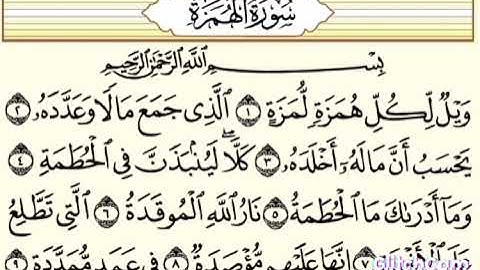 سُورَةُ الْهُمَزَةِ
بِسْمِ اللَّهِ الرَّحْمَٰنِ الرَّحِيمِ
وَيْلٌ لِّكُلِّ هُمَزَةٍ لُّمَزَةٍ ١ الَّذِى جَمَعَ مَالًا وَعَدَّدَهُۥ ٢
يَحْسَبُ أَنَّ مَالَهُۥٓ أَخْلَدَهُۥ ٣ كَلَّا ۖ لَيُنۢبَذَنَّ فِى الْحُطَمَةِ ٤
وَمَآ أَدْرَىٰكَ مَا الْحُطَمَةُ ٥ نَارُ اللَّهِ الْمُوقَدَةُ ٦ الَّتِى تَطَّلِعُ
عَلَى الْأَفْـِٔدَةِ ٧ إِنَّهَا عَلَيْهِم مُّؤْصَدَةٌ ٨ فِى عَمَدٍ مُّمَدَّدَةٍۭ ٩